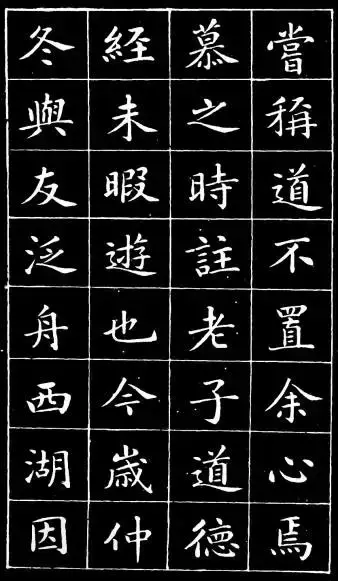 嘗稱道不置余心焉
慕之時註老子道德
經未暇遊也今歲仲
冬與友泛舟西湖因